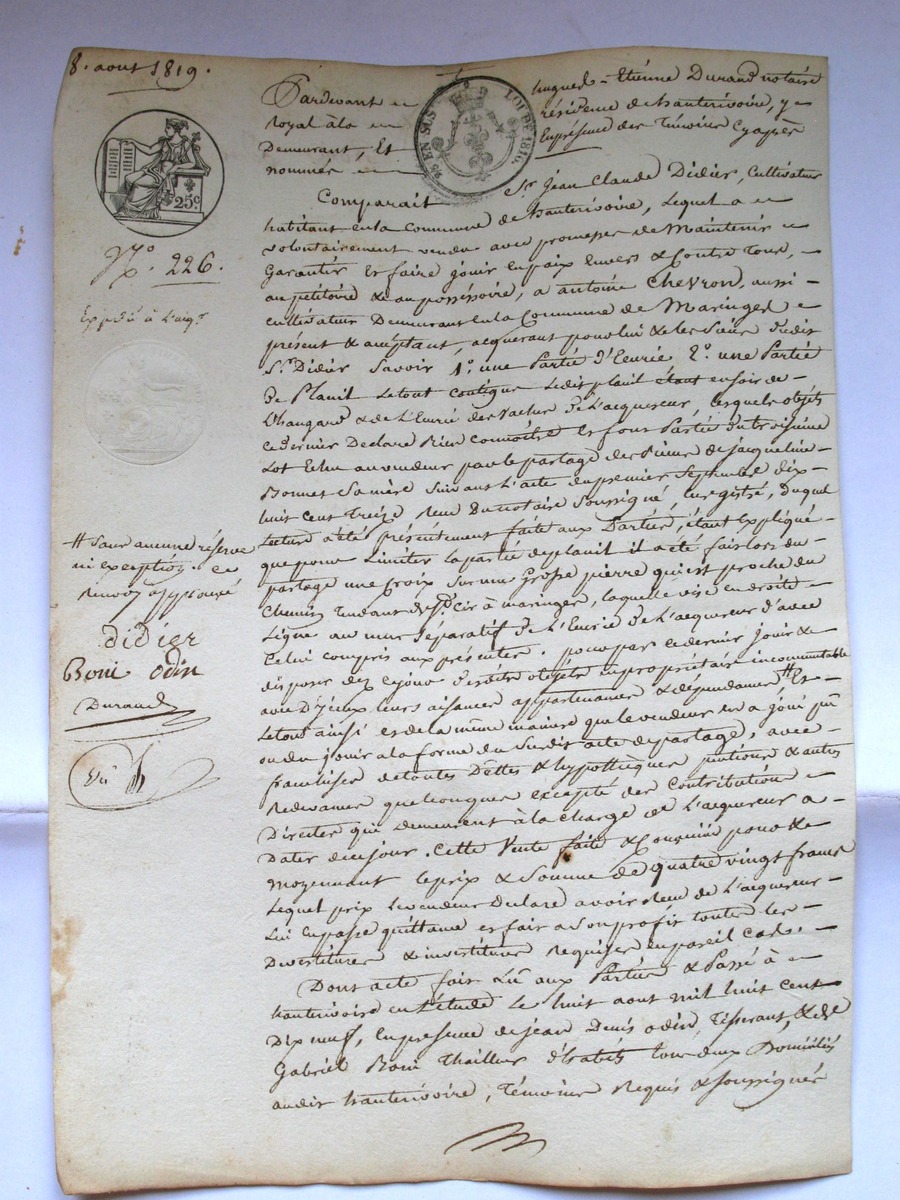 8. aout 1819.
Pardevant hugues-Etienne Durand notaire
royal à la résidence de hauterivoire, y
Demeurant, Et En présence des Témoins Cyaprès
nommés
Comparait Sr. Jean Claude Didier, Cultivateur
habitant en la Commune de hauterivoire, Lequel a
volontairement vendu avec promesses de Maintenir
Garantir et faire jouir en paix Envers & Contre Tous,
au pétitoire & au possessoire, a antoine Chevron, aussi
cultivateur Demeurant en la Commune de Maringes
présent & acceptant, acquerant pour lui & les Siens dudit
Sr. Didier Savoir 1o. une Partie d'Ecurie 2o. une Partie
De Plauil Le tout contigue Ledit plauil étant en soir de
L'hangard & de L'Ecurie des vaches de L'acquereur, Lesquels objets
ce dernier Declare Bien connoitre et font Partie du troisième
Lot Echu au vendeur par le partage des Biens de jacqueline
Bonnet Sa mère suivant L'acte du premier Septembre dix
huit Cent Treize Recu Du notaire Soussigné Enregistré, Duquel
Lecture a été présentement faite aux Parties, étant Expliqué
que pour Limiter la partie de plauil il a été fait lors du
partage une Croix Sur une Grosse pierre qui est proche du
Chemin Tendant de St. Cir à maringes, laquelle vise en droite
Ligne au mur Séparatif de L'Ecurie de L'acquereur d'avec
Celui compris aux présentes. pour par ce dernier jouir &
disposer dez cejour desdits objets en propriétaire incommutable
avec D'iceux Leurs aisances appartenances & dépendances # Et
Le tout ainsi et de la même manière que le vendeur en a joui pu
ou du jouir a la forme du Susdit acte de partage, avec
franchises de toutes Dettes & hypothèques pensions & autres
Redevances quelconques excepté des Contributions
Directes qui demeurent à la charge de L'acquereur a
Dater de ce jour. Cette Vente faite & Convenue pour &
moyennant le prix & Somme de quatre vingt francs
Lequel prix le vendeur Declare avoir Recu de L'acquereur
Lui en passe quittance et fait a Son profit toutes les
Devestitures & investitures Requises en pareil Cas.
Dont acte fait Lû aux Parties & Passé à
hauterivoire en L'étude Le huit aout mil huit cent
Dix neuf, En présence de jean Denis odin, Tisserant, & de
Gabriel Boni Thailleur d'habits tous deux Domiciliés
audit hauterivoire, Témoins Requis & Soussignés
25c
95 EN SUS
LOI DE 1816.
No. 226.
# Sans aucune réserve
ni exception. ce
Renvoi approuvé
didier
Boni odin
Durand